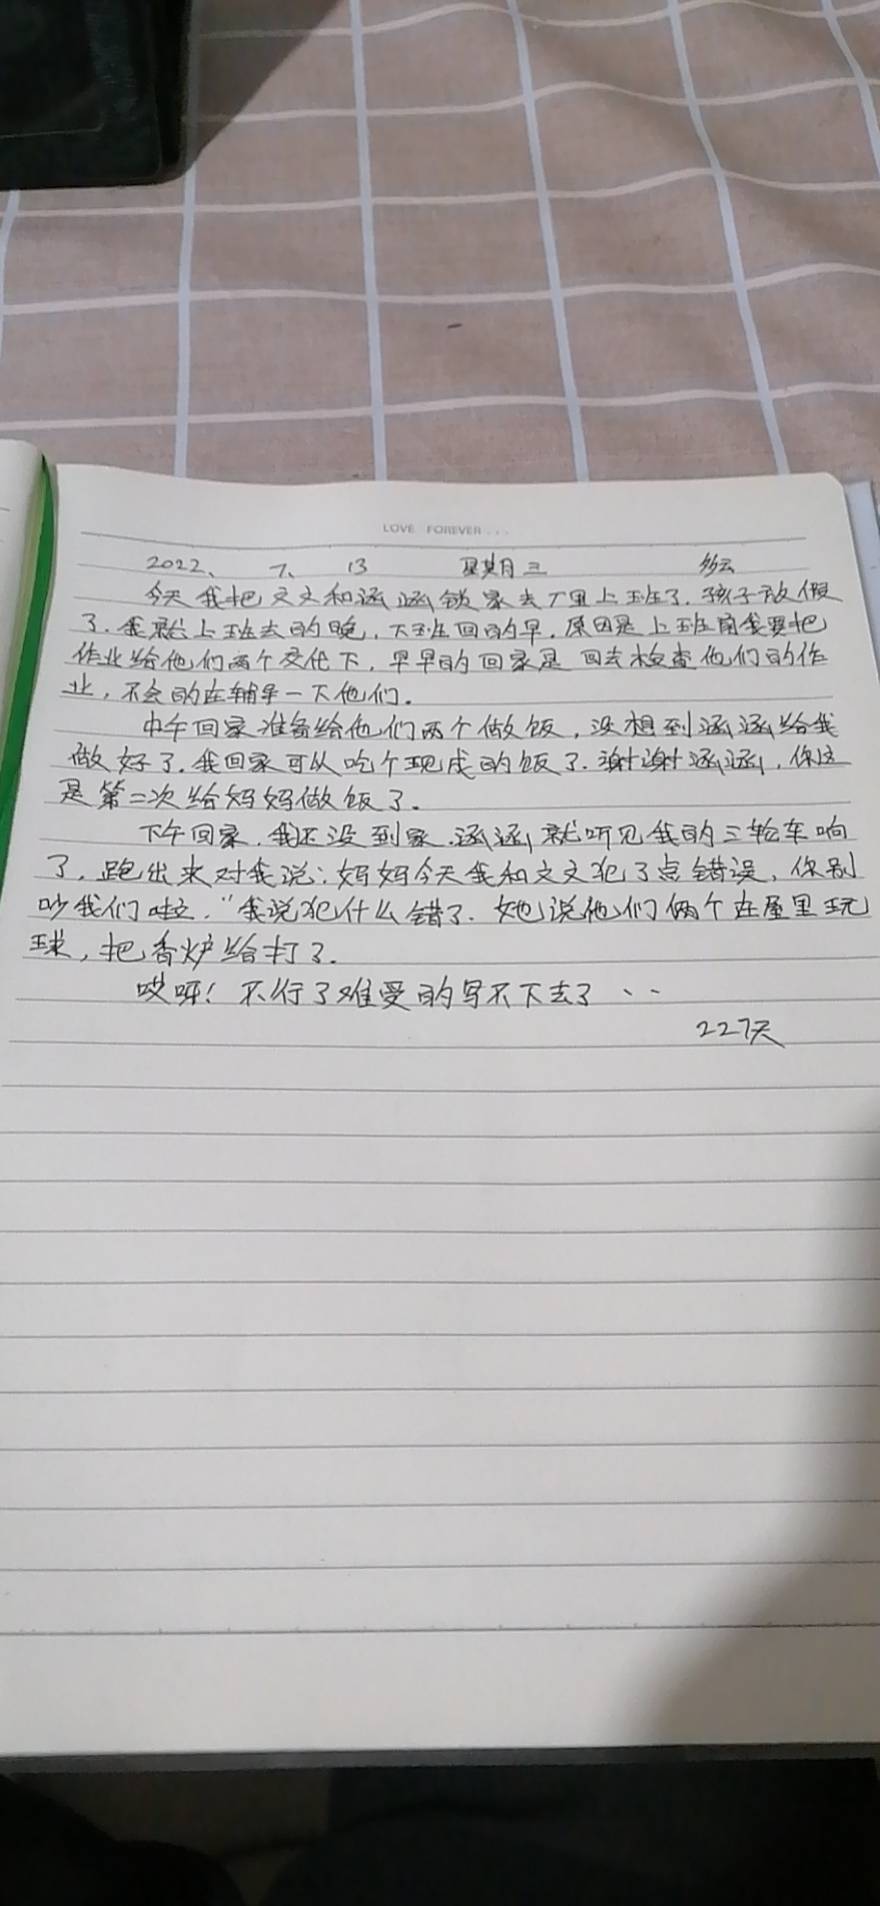 LOVE FOREVER...
2022、 7、 13 星期三 多云
今天我把文文和涵涵锁家去厂里上班了.孩子放假
了.我就上班去的晚,下班回的早,原因是上班前我要把
作业给他们两个交代下,早早的回家是 回去检查他们的作
业,不会的在辅导一下他们.
中午回家准备给他们两个做饭,没想到涵涵给我
做好了.我回家可以吃个现成的饭了.谢谢涵涵,你这
是第二次给妈妈做饭了.
下午回家.我还没到家.涵涵就听见我的三轮车响
了,跑出来对我说:妈妈今天我和文文犯了点错误,你别
吵我们哇,"我说犯什么错了.她说他们俩个在屋里玩
球,把香炉给打了.
哎呀!不行了难受的写不下去了、、
227天